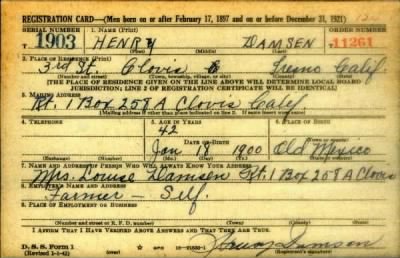 REGISTRATION CARD—(Men born on or after February 17, 1897 and on or before December 31, 1921)
SERIAL NUMBER 1. NAME (Print) ORDER NUMBER
1903 HENRY DAMSEN 11261
(First) (Middle) (Last)
2. PLACE OF RESIDENCE (Print)
3rd St. Clovis Fresno Calif.
(Number and street) (Town, township, village, or city) (County) (State)
[THE PLACE OF RESIDENCE GIVEN ON THE LINE ABOVE WILL DETERMINE LOCAL BOARD
JURISDICTION; LINE 2 OF REGISTRATION CERTIFICATE WILL BE IDENTICAL]
3. MAILING ADDRESS
Rt. 1 Box 258 A Clovis Calif
[Mailing address if other than place indicated on line 2. If same insert word same]
4. TELEPHONE 5. AGE IN YEARS 6. PLACE OF BIRTH
42
DATE OF BIRTH
Jan 18 1900 Old Mexico
(Exchange) (Number) (Mo.) (Day) (Yr.) (State or country)
7. NAME AND ADDRESS OF PERSON WHO WILL ALWAYS KNOW YOUR ADDRESS
Mrs. Louise Damsen Rt. 1 Box 258 A Clovis
8. EMPLOYER'S NAME AND ADDRESS
Farmer - Self.
9. PLACE OF EMPLOYMENT OR BUSINESS
(Number and street or R. F. D. number) (Town) (County) (State)
I AFFIRM THAT I HAVE VERIFIED ABOVE ANSWERS AND THAT THEY ARE TRUE.
D. S. S. Form 1 Henry Damsen
(Revised 1-1-42) (Registrant's signature)